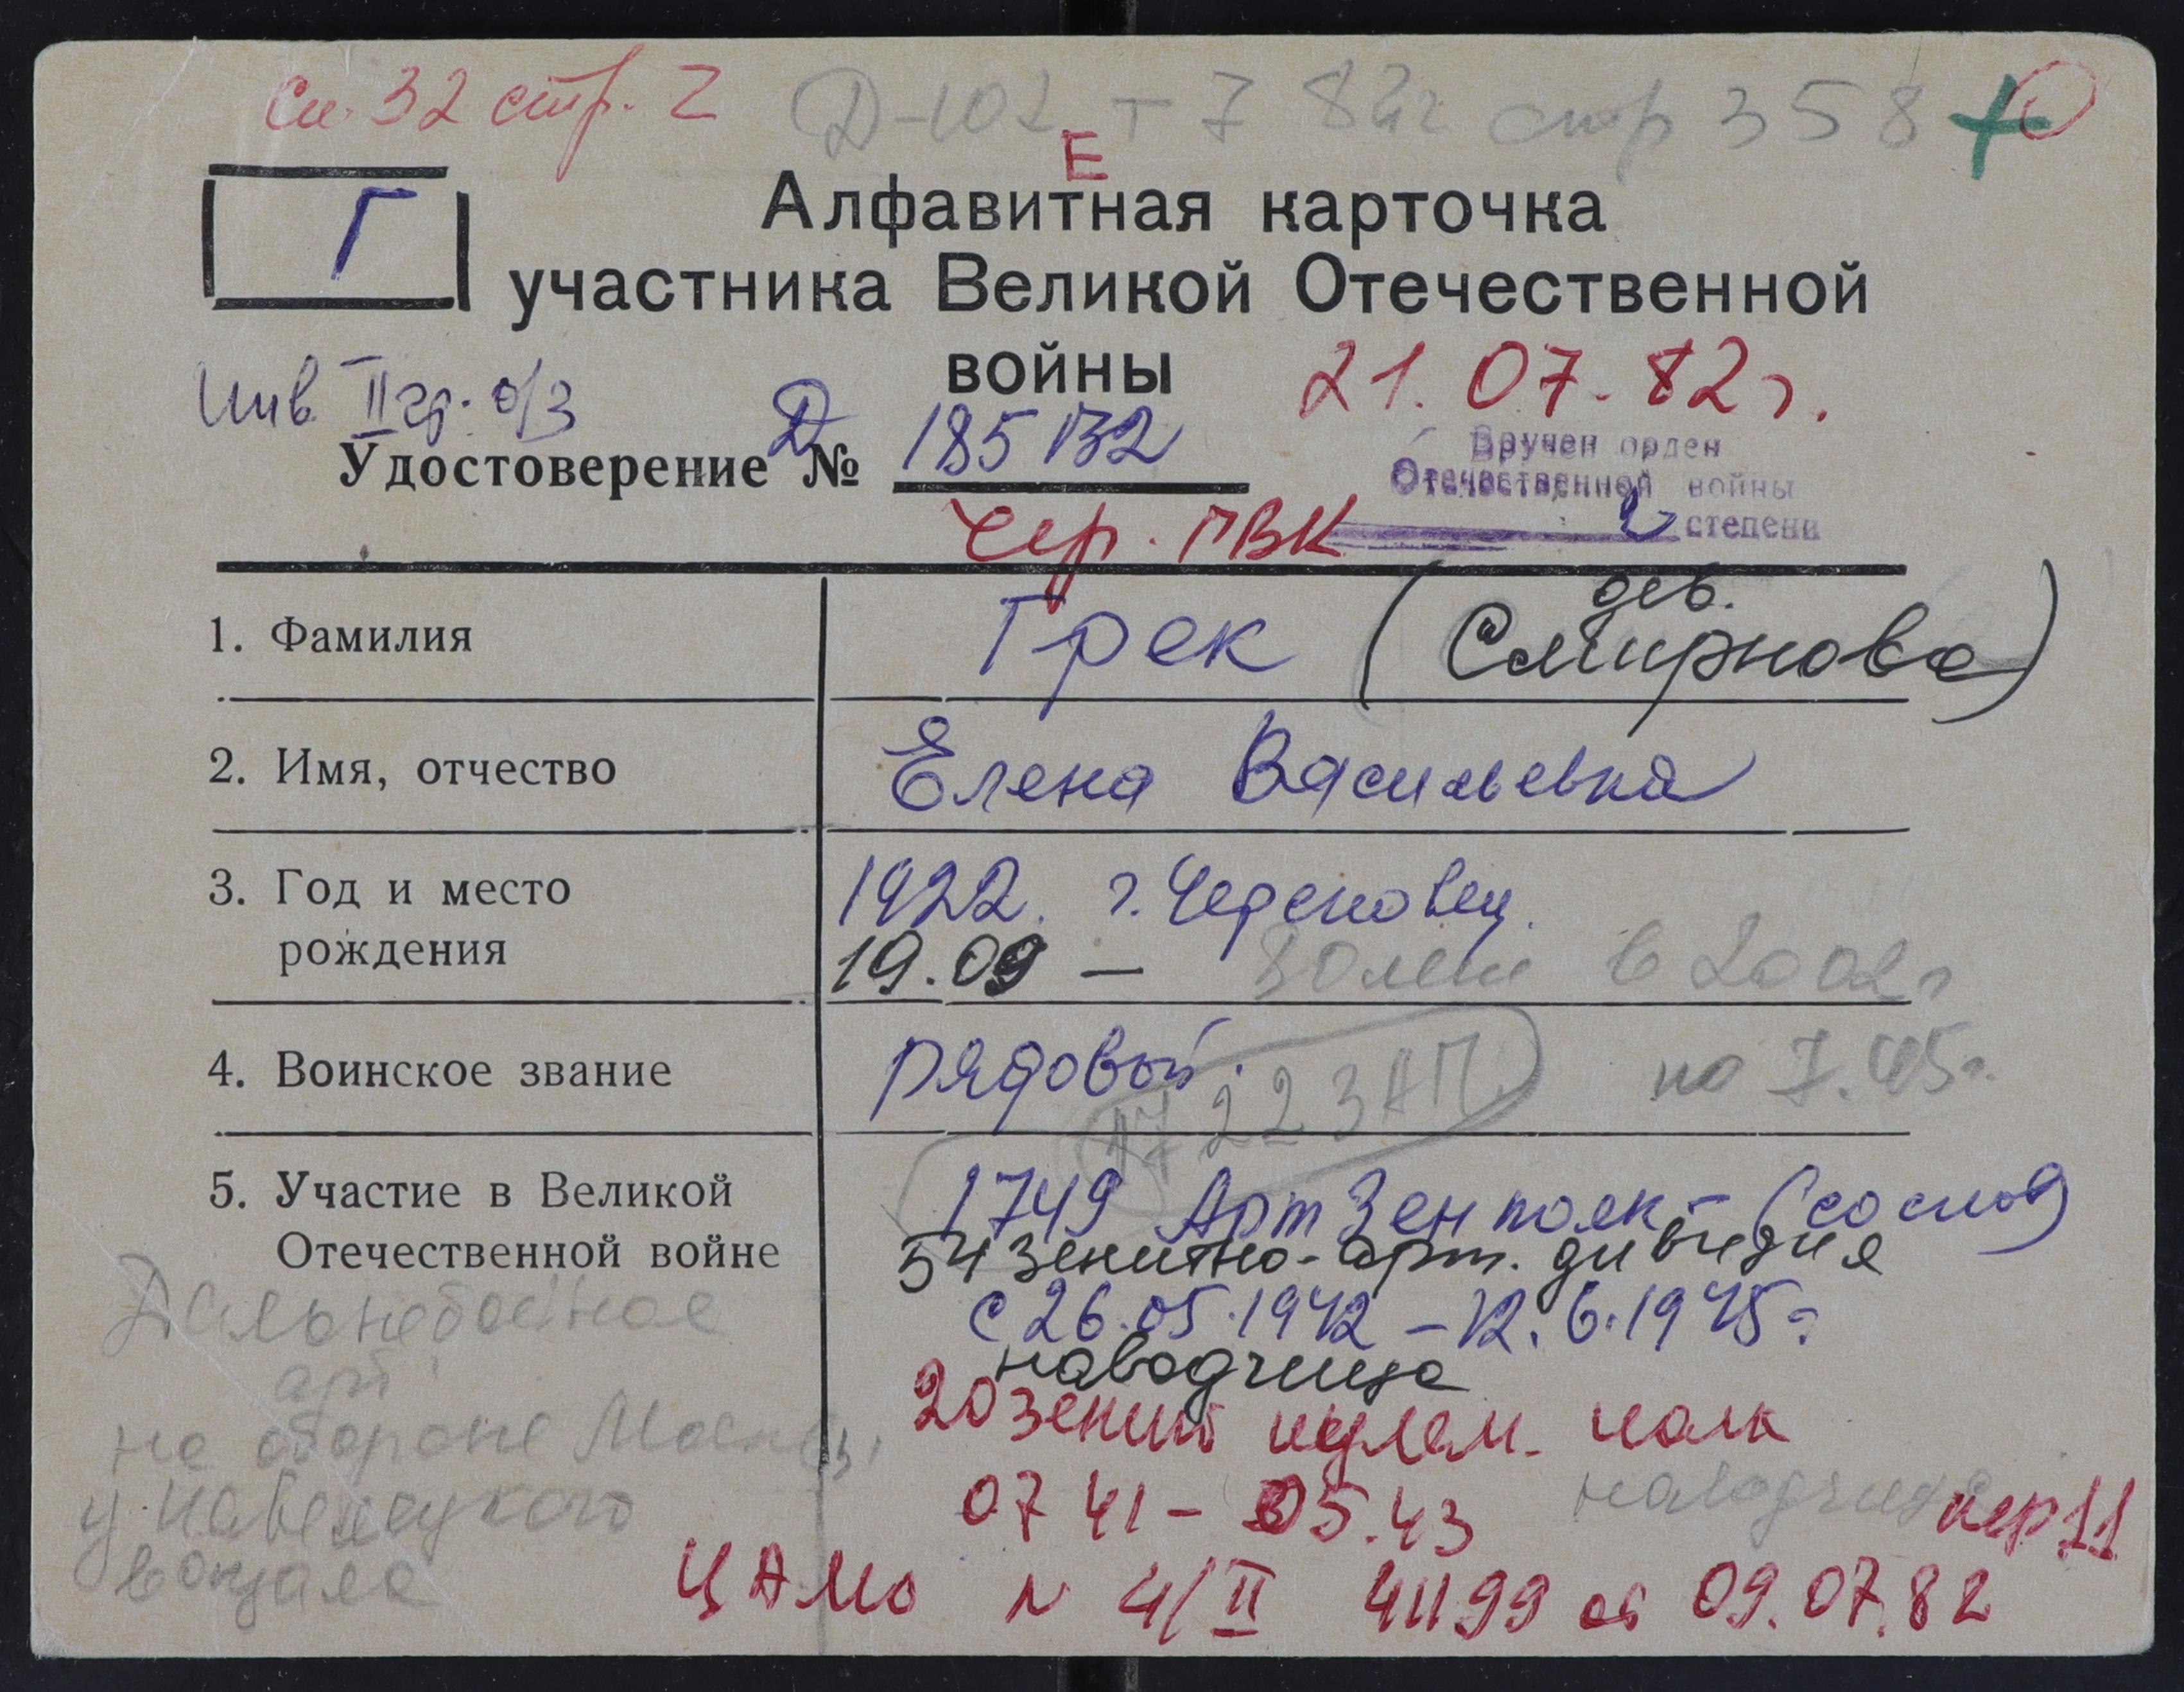 Сп. 32 стр. 2 Д-102 т 7 82г стр 358
Е
Г
Алфавитная карточка
участника Великой Отечественной
войны
21.07.82г.
Инв. II гр. о/з
Удостоверение Д № 185132
Вручен орден
Отечественной войны
2 степени
Чер. ГВК
1. Фамилия Грек (дев. Смирнова)
2. Имя, отчество Елена Васильевна
3. Год и место 1922. г. Череповец.
рождения 19.09 — 80 лет в 2002г
4. Воинское звание рядовой.
1722 ЗАП по 7.45г.
5. Участие в Великой 1749 Арт Зен полк -
Отечественной войне 54 зенитно-арт. дивизия
с 26.05.1942 – 12.6.1945г
Дальнобойная
арт.
наводчица
на обороне Москвы,
у Павелецкого
вокзала
20 зенит пулем. полк
07 41 – 05.43 наводчица
пер 11
ЦАМО N 4/II 41199 от 09.07.82